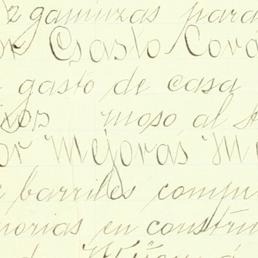 2 gamuzas para
or Casto Cor
gasto de casa
moso al
or Mejoras M
e barriles comp
norias en constru